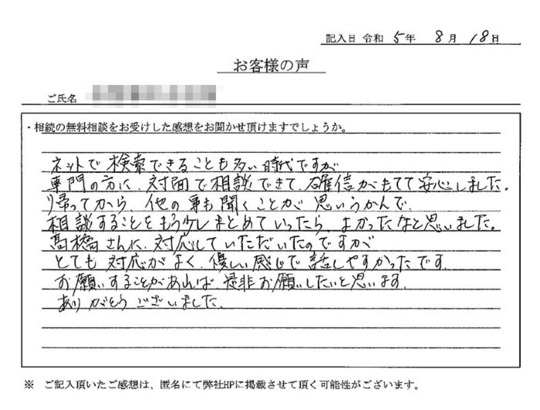 記入日 令和 5年 8月 18日
お客様の声
ご氏名
・相続の無料相談をお受けした感想をお聞かせ頂けますでしょうか。
ネットで検索できることも多い時代ですが
専門の方に、対面で相談できて、確信がもてて安心しました。
帰ってから、他の事も聞くことが思いうかんで、
相談することをもう少しまとめていったら、よかったなと思いました。
髙橋さんに、対応していただいたのですが
とても対応がよく、優しい感じで話しやすかったです。
お願いすることがあれば、是非お願いしたいと思います。
ありがとうございました。
※ ご記入頂いたご感想は、匿名にて弊社HPに掲載させて頂く可能性がございます。